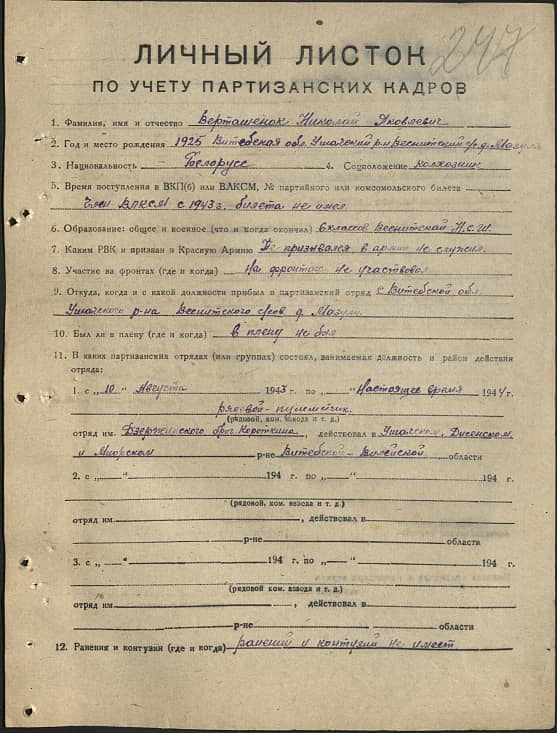 247
ЛИЧНЫЙ ЛИСТОК
ПО УЧЕТУ ПАРТИЗАНСКИХ КАДРОВ
1. Фамилия, имя и отчество Верташенок Николай Яковлевич
2. Год и место рождения 1925 Витебская обл. Ушачский р-н Веснитский с/с д. Мазули
3. Национальность Белорусс 4. Соцположение Колхозник
5. Время поступления в ВКП(б) или ВЛКСМ, № партийного или комсомольского билета
Член ВЛКСМ с 1943 г. билета не имел.
6. Образование: общее и военное (что и когда окончил) 6 классов Веснитской Н.С.Ш.
7. Каким РВК и призван в Красную Армию Не призывался в армии не служил.
8. Участие на фронтах (где и когда) На фронтах не участвовал
9. Откуда, когда и с какой должности прибыл в партизанский отряд с Витебской обл.
Ушачского р-на Веснитского с/сов д. Мазули.
10. Был ли в плену (где и когда) В плену не был
11. В каких партизанских отрядах (или группах) состоял, занимаемая должность и район действия
отряда:
1. с „10 “ Августа 1943 г. по „ “ Настоящее время 1944 г.
рядовой-пулеметчик.
(рядовой, ком. взвода и т. д.)
отряд им. Дзержинского бриг. Короткина, действовал в Ушачском, Дисенском,
и Миорском р-не Витебской-Вилейской области
2. с „ “ 194 г. по „ “ 194 г.
(рядовой, ком. взвода и т. д.)
отряд им. , действовал в
р-не области
3. с „ “ 194 г. по „ “ 194 г.
(рядовой, ком. взвода и т. д.)
отряд им , действовал в
р-не области
12. Ранения и контузии (где и когда) ранений и контузий не имеет